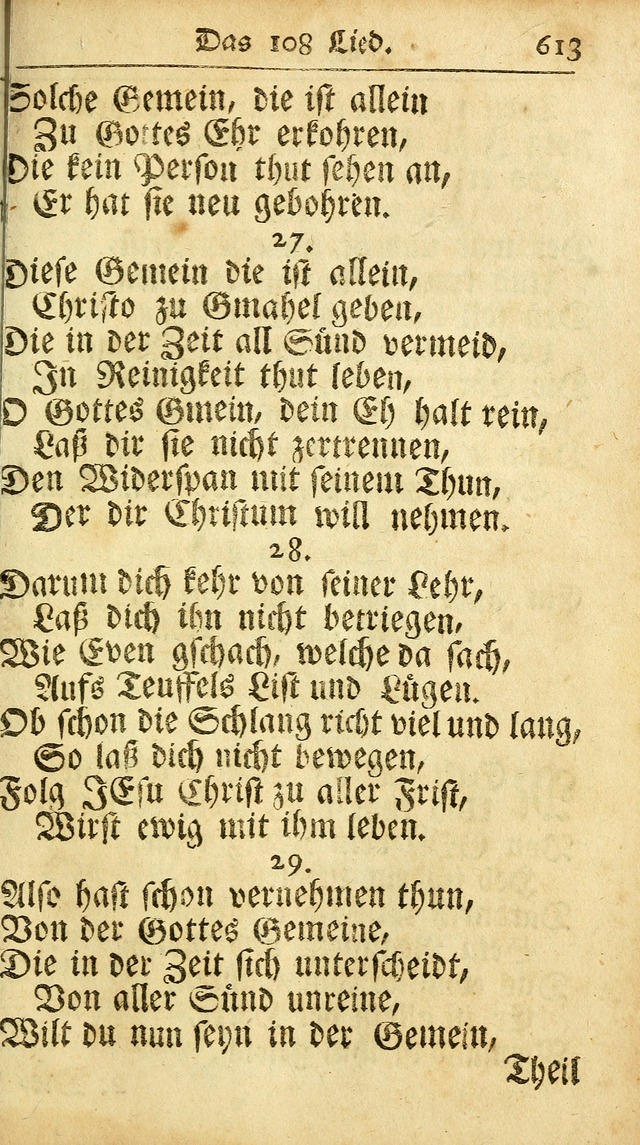 Das 108 Lied. 613
Solche Gemein, die ist allein
Zu Gottes Ehr erkohren,
Die kein Person thut sehen an,
Er hat sie neu gebohren.
27.
Diese Gemein die ist allein,
Christo zu Gmahel geben,
Die in der Zeit all Sünd vermeid,
In Reinigkeit thut leben,
O Gottes Gmein, dein Eh halt rein,
Laß dir sie nicht zertrennen,
Den Widerspan mit seinem Thun,
Der dir Christum will nehmen.
28.
Darum dich kehr von seiner Lehr,
Laß dich ihn nicht betriegen,
Wie Even gschach, welche da sach,
Aufs Teuffels List und Lügen.
Ob schon die Schlang richt viel und lang,
So laß dich nicht bewegen,
Folg JEsu Christ zu aller Frist,
Wirst ewig mit ihm leben.
29.
Also hast schon vernehmen thun,
Von der Gottes Gemeine,
Die in der Zeit sich unterscheidt,
Von aller Sünd unreine,
Wilt du nun seyn in der Gemein,
Theil